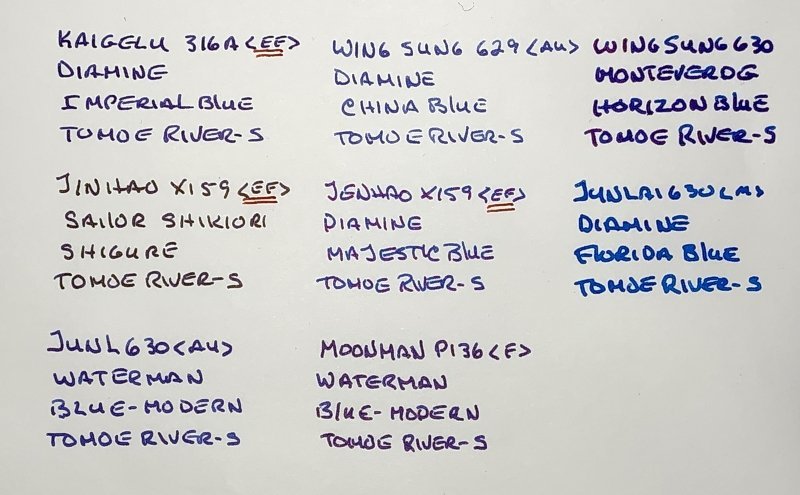 KAIGELU 316A <EF>
DIAMINE
IMPERIAL BLUE
TOMOE RIVER-S
WING SUNG 629 <AU>
DIAMINE
CHINA BLUE
TOMOE RIVER-S
WING SUNG 630
MONTEVERDE
HORIZON BLUE
TOMOE RIVER-S
JINHAO X159 <EF>
SAILOR SHIKIORI
SHIGURE
TOMOE RIVER-S
JENHAO X159 <EF>
DIAMINE
MAJESTIC BLUE
TOMOE RIVER-S
JUNLAI 630 <M>
DIAMINE
FLORIDA BLUE
TOMOE RIVER-S
JUNL 630 <AU>
WATERMAN
BLUE-MODERN
TOMOE RIVER-S
MOONMAN P136 <F>
WATERMAN
BLUE-MODERN
TOMOE RIVER-S